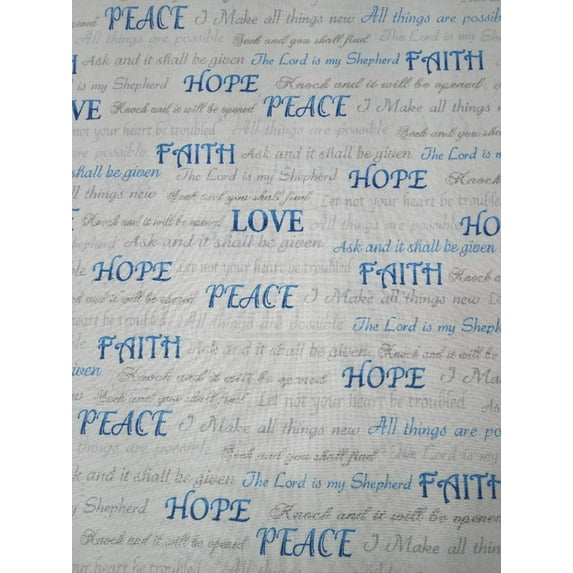 PEACE I Make all things new All things are possib
things are possible Seek and you shall find Let not your heart be
H Ask and it shall be given The Lord is my Shepherd FAITH
is my Shepherd HOPE Knock and it will be opened
VE Knock and it will be opened PEACE I Make all things n
Let not your heart be troubled All things are possible Seek and you sha
FAITH Ask and it shall be given The Lord is m
shall be given The Lord is my Shepherd HOPE Knock
ll things new Seek and you shall find Let not your heart be troubled
E Knock and it will be opened LOVE All things are possible HO
Shepherd Ask and it shall be given Ask and it shall be given
le HOPE Let not your heart be troubled FAITH Knock a
Knock and it will be opened PEACE I Make all things new
heart be troubled All things are possible The Lord is my Sheph
FAITH Ask and it shall be given Knock and it will be
iven Knock and it will be opened HOPE I Ma
Seek and you shall find Let not your heart be troubled As
PEACE I Make all things new All things are po
things are possible Seek and you shall find
Ask and it shall be given The Lord is my Shepherd FAITH
y Shepherd HOPE Knock and it will be opened
Knock and it will be opened PEACE I Make all thin
our heart be troubled All things are possible